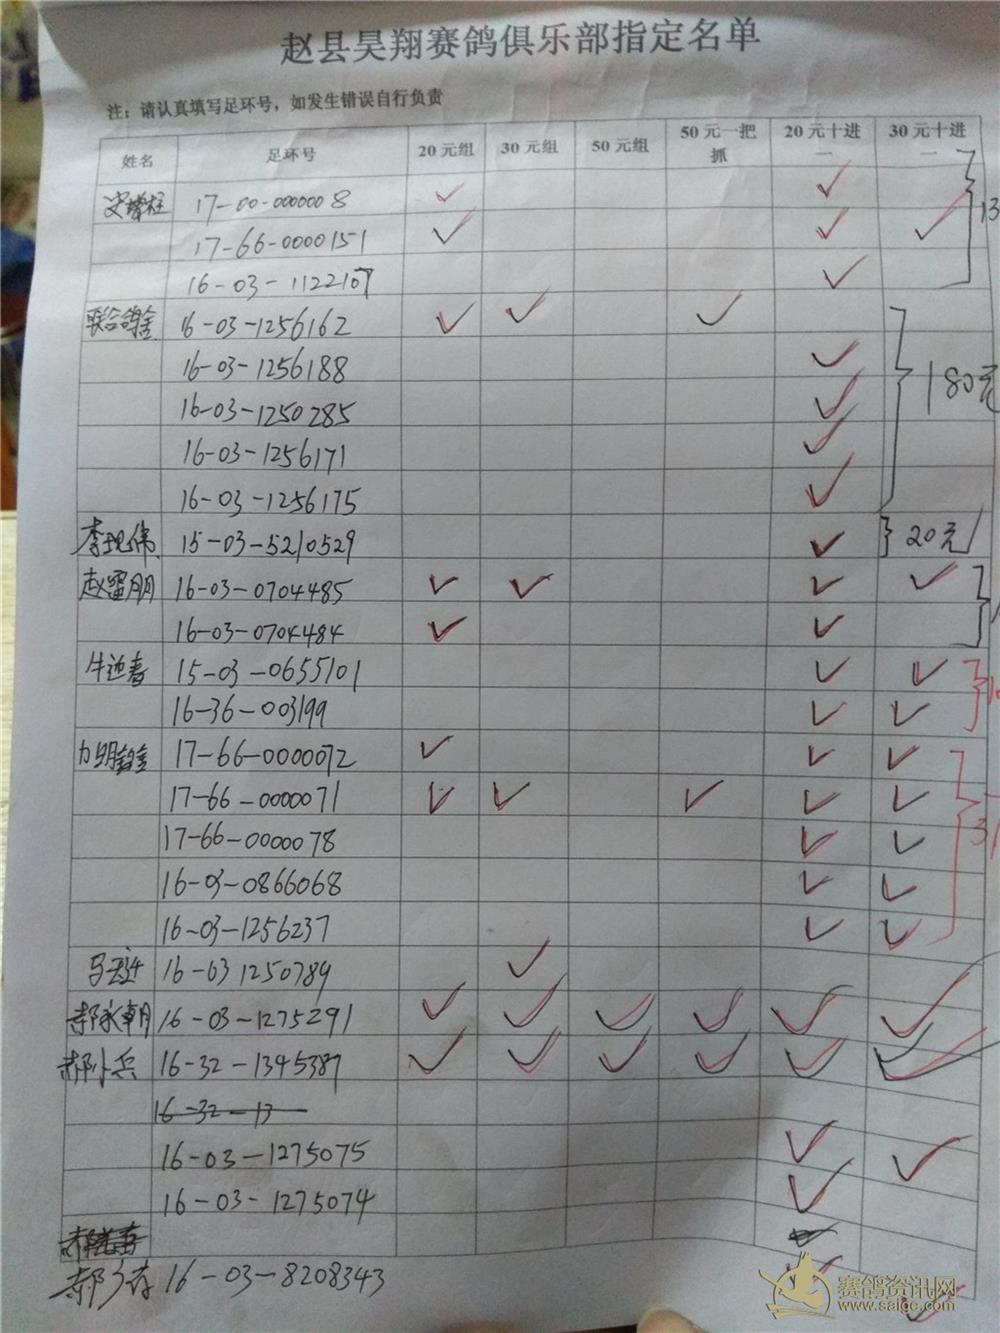 赵县昊翔赛鸽俱乐部指定名单
注：请认真填写足环号，如发生错误自行负责
姓名 足环号 20元组 30元组 50元组 50元一把抓 20元十进一 30元十进一
17-00-0000008 ✓ ✓
17-66-0000151 ✓ ✓ ✓
16-03-1122107 ✓
13
联合鸽舍 16-03-1256162 ✓ ✓ ✓
16-03-1256188 ✓
16-03-1250285 ✓
180元
16-03-1256171 ✓
16-03-1256175 ✓
李现伟 15-03-5210529 ✓ 20元
赵雷朋 16-03-0704485 ✓ ✓ ✓ ✓
16-03-0704484 ✓ ✓
牛迎春 15-03-0655101 ✓ ✓
16-36-003199 ✓ ✓
17-66-0000072 ✓ ✓ ✓
17-66-0000071 ✓ ✓ ✓ ✓ ✓
17-66-0000078 ✓ ✓
16-03-0866068 ✓ ✓
16-03-1256237 ✓ ✓
16-03 1250789 ✓
郝永朝 16-03-1275291 ✓ ✓ ✓ ✓ ✓ ✓
郝小兵 16-32-1345387 ✓ ✓ ✓ ✓ ✓ ✓
16-32-13
16-03-1275075 ✓ ✓
16-03-1275074 ✓
16-03-8208343 ✓ ✓
赛鸽资讯网
www.saige.com